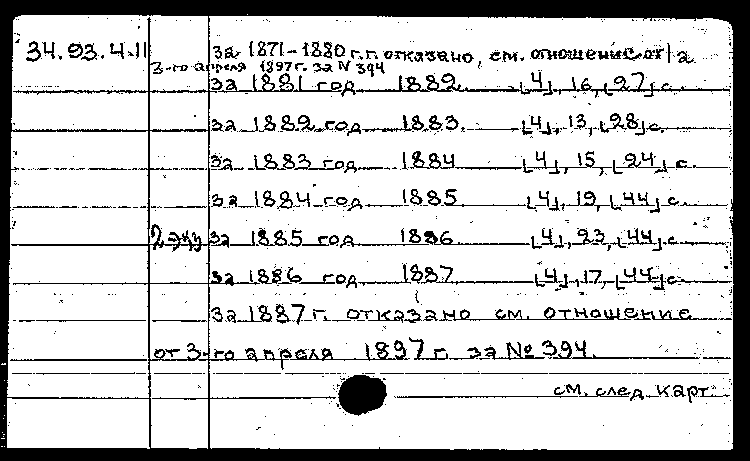 34.93.4.11 за 1871-1880 г.г. отказано, см. отношение от
3-го апреля 1897г. за N 394
за 1881 год 1882. [4], 16, [27] с.
за 1882 год 1883. [4], 13, [28] с.
за 1883 год 1884 [4], 15, [24] с.
за 1884 год 1885. [4], 19, [44] с.
2 экз за 1885 год 1886. [4], 23, [44] с.
за 1886 год 1887. [4], 17, [44] с.
за 1887 г. отказано см. отношение
от 3-го апреля 1897 г. за № 394.
см. след. карт.